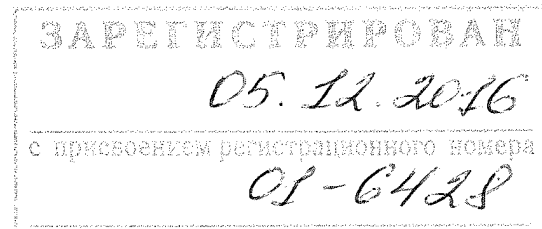 ЗАРЕГИСТРИРОВАН
05.12.2016
с присвоением регистрационного номера
01-6428